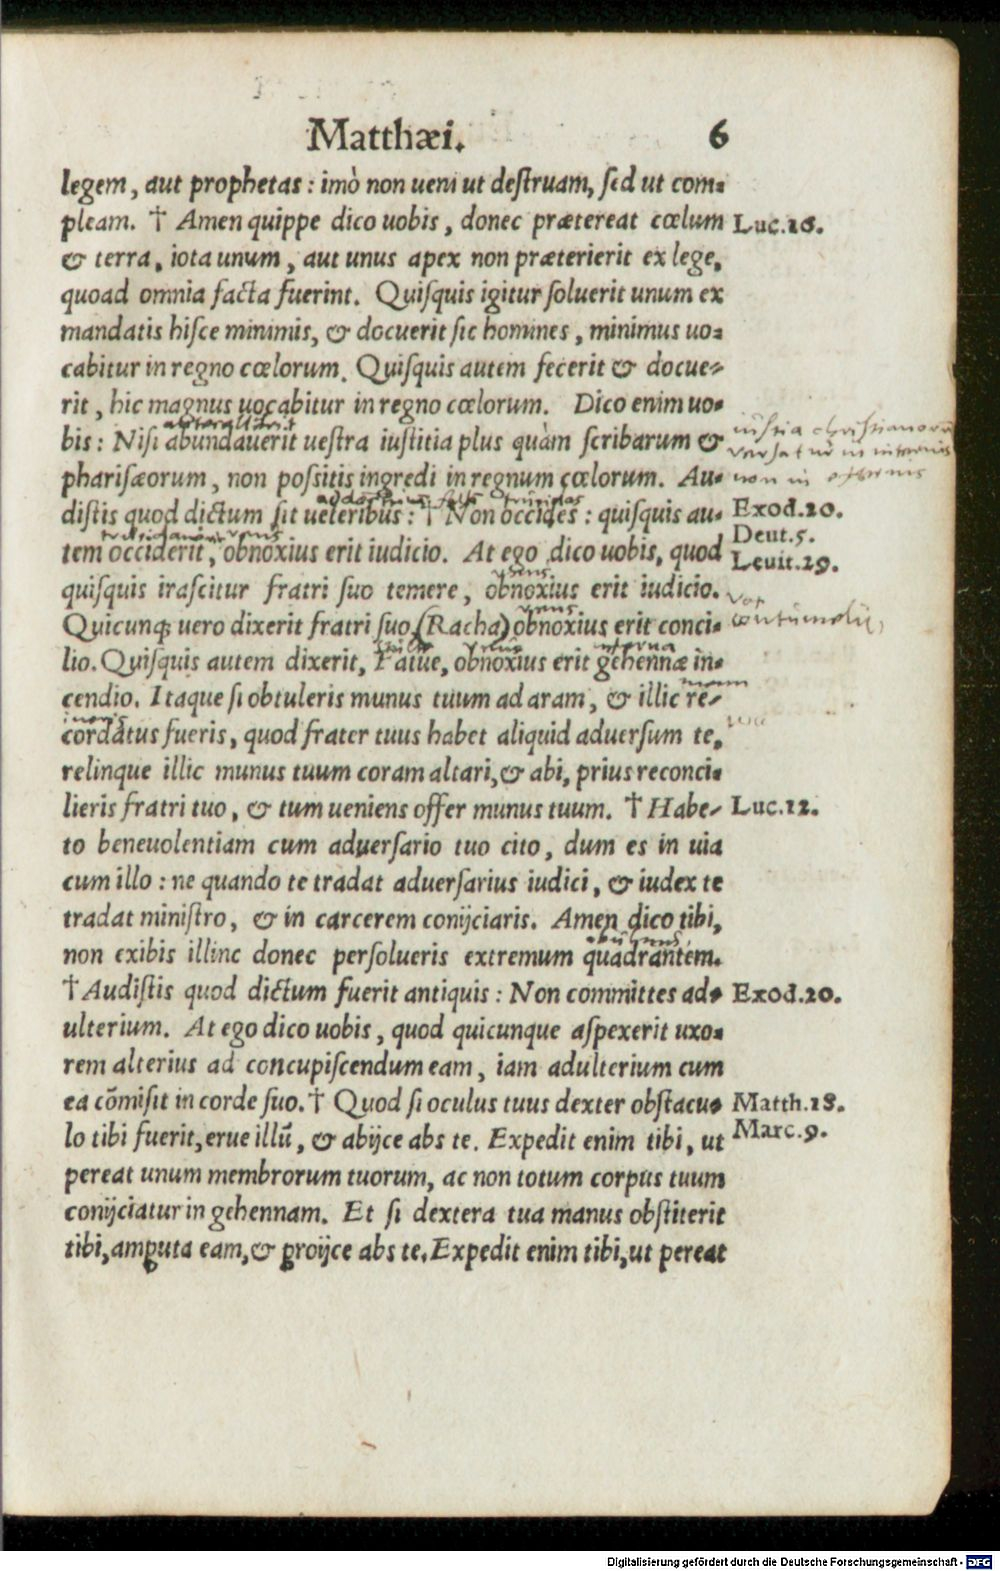 Matthæi. 6
legem, aut prophetas: imò non ueni ut destruam, sed ut com-
pleam. † Amen quippe dico uobis, donec prætereat cœlum Luc.16.
& terra, iota unum, aut unus apex non præterierit ex lege,
quoad omnia facta fuerint. Quisquis igitur soluerit unum ex
mandatis hisce minimis, & docuerit sic homines, minimus uo-
cabitur in regno cœlorum. Quisquis autem fecerit & docue-
rit, hic magnus uocabitur in regno cœlorum. Dico enim uo-
bis: Nisi abundauerit uestra iustitia plus quàm scribarum &
pharisæorum, non possitis ingredi in regnum cœlorum. Au- non in externis
distis quod dictum sit ueteribus: † Non occides: quisquis au- Exod.20.
Deut.5.
tem occiderit, obnoxius erit iudicio. At ego dico uobis, quod Leuit.19.
quisquis irascitur fratri suo temere, obnoxius erit iudicio.
Quicunq; uero dixerit fratri suo (Racha) obnoxius erit conci-
lio. Quisquis autem dixerit, Fatue, obnoxius erit gehennæ in-
cendio. Itaque si obtuleris munus tuum ad aram, & illic re-
cordatus fueris, quod frater tuus habet aliquid aduersum te,
relinque illic munus tuum coram altari, & abi, prius reconci-
lieris fratri tuo, & tum ueniens offer munus tuum. † Habe- Luc.12.
to beneuolentiam cum aduersario tuo cito, dum es in uia
cum illo: ne quando te tradat aduersarius iudici, & iudex te
tradat ministro, & in carcerem conijciaris. Amen dico tibi,
non exibis illinc donec persolueris extremum quadrantem.
† Audistis quod dictum fuerit antiquis: Non committes ad- Exod.20.
ulterium. At ego dico uobis, quod quicunque aspexerit uxo-
rem alterius ad concupiscendum eam, iam adulterium cum
ea cōmisit in corde suo. † Quod si oculus tuus dexter obstacu- Matth.18.
lo tibi fuerit, erue illū, & abijce abs te. Expedit enim tibi, ut Marc.9.
pereat unum membrorum tuorum, ac non totum corpus tuum
conijciatur in gehennam. Et si dextera tua manus obstiterit
tibi, amputa eam, & proijce abs te. Expedit enim tibi, ut pereat
Digitalisierung gefördert durch die Deutsche Forschungsgemeinschaft - DFG